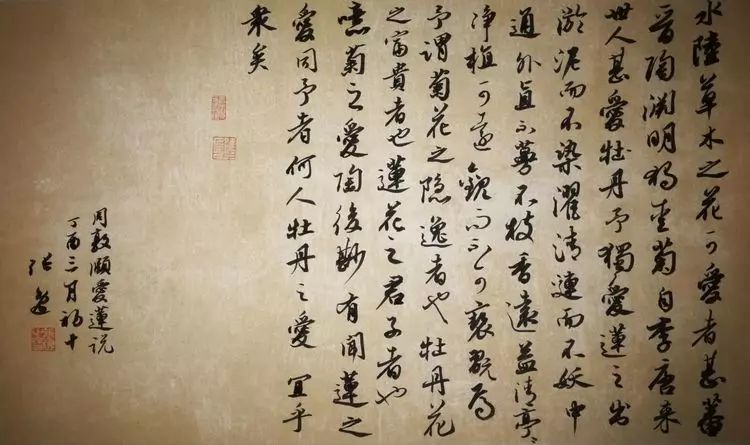 水陸草木之花可愛者甚蕃
晉陶淵明独爱菊自李唐来
世人甚愛牡丹予獨愛蓮之出
淤泥而不染濯清漣而不妖中
通外直不蔓不枝香遠益清亭々
净植可遠觀而不可褻翫焉
予謂菊花之隐逸者也牡丹花
之富貴者也蓮花之君子者也
噫菊之愛陶後尠有聞蓮之
愛同予者何人牡丹之愛宜乎
衆矣
周敦頤愛蓮説
丁酉三月初十
张